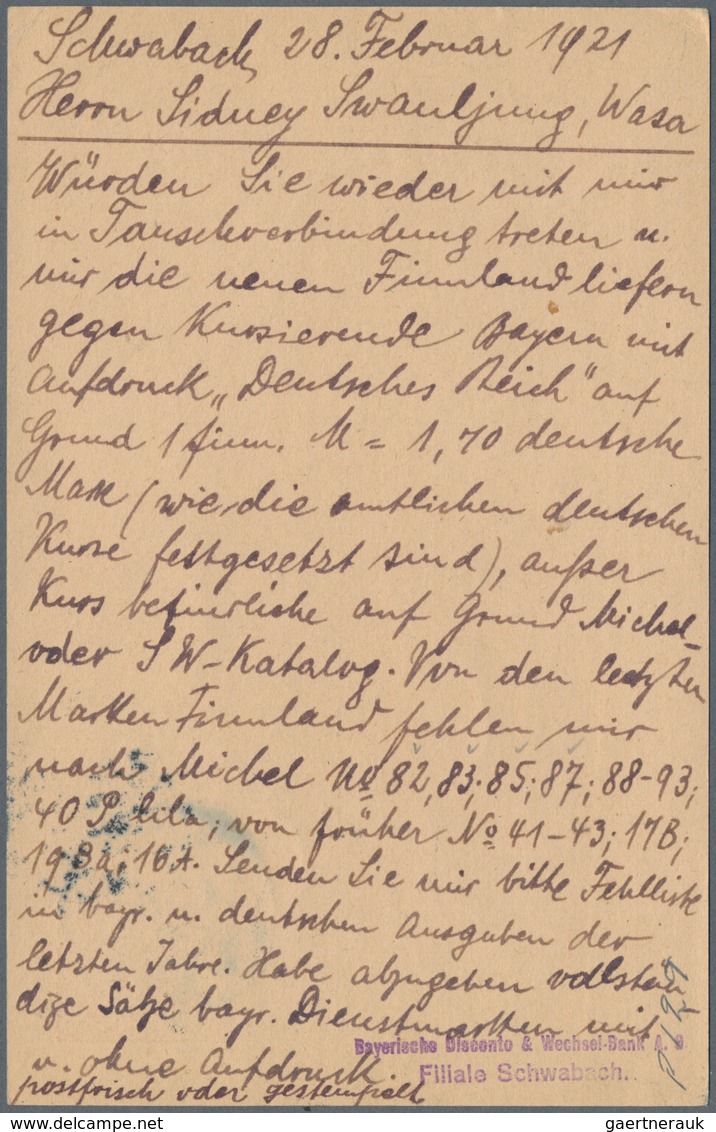 Schwabach, 28. Februar 1921
Herrn Sidney Swanljung, Wasa
Würden Sie wieder mit mir
in Tauschverbindung treten u.
mir die neuen Finnland liefern
gegen Kursierende Bayern mit
Aufdruck „Deutsches Reich“ auf
Grund 1 finn. M = 1,70 deutsche
Mark (wie die amtlichen deutschen
Kurse festgesetzt sind), außer
Kurs befindliche auf Grund Michel-
oder SW-Katalog. Von den letzten
Marken Finnland fehlen mir
nach Michel No 82, 83; 85; 87; 88-93;
40 P lila; von früher No 41-43; 17B;
19Ba; 16A. Senden Sie mir bitte Fehlliste
in bayr. u. deutschen Ausgaben der
letzten Jahre. Habe abzugeben vollstän
dige Sätze bayr. Dienstmarken mit
u. ohne Aufdruck.
postfrisch oder gestempelt
Bayerische Disconto & Wechsel-Bank A. G.
Filiale Schwabach.
gaertnerauk